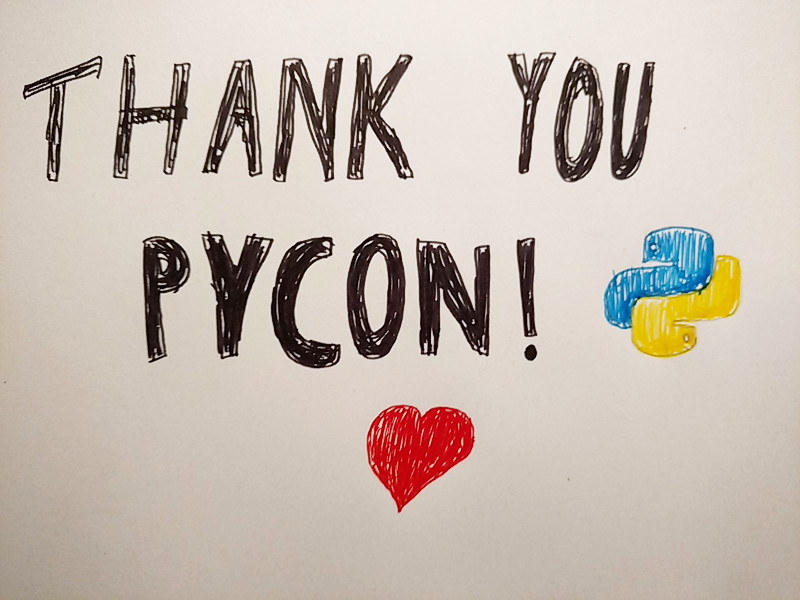 THANK YOU
PYCON!